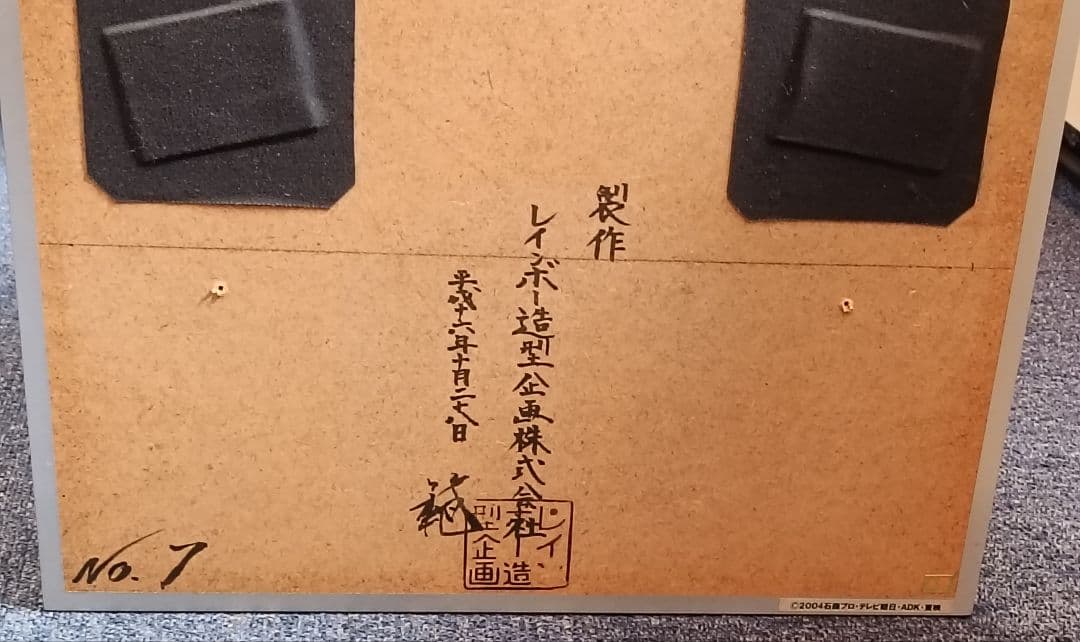 製作
レインボー造型企画株式会社
平成十六年十月二十八日
レイン
造
型企画
No. 7
©2004石森プロ・テレビ朝日・ADK・東映